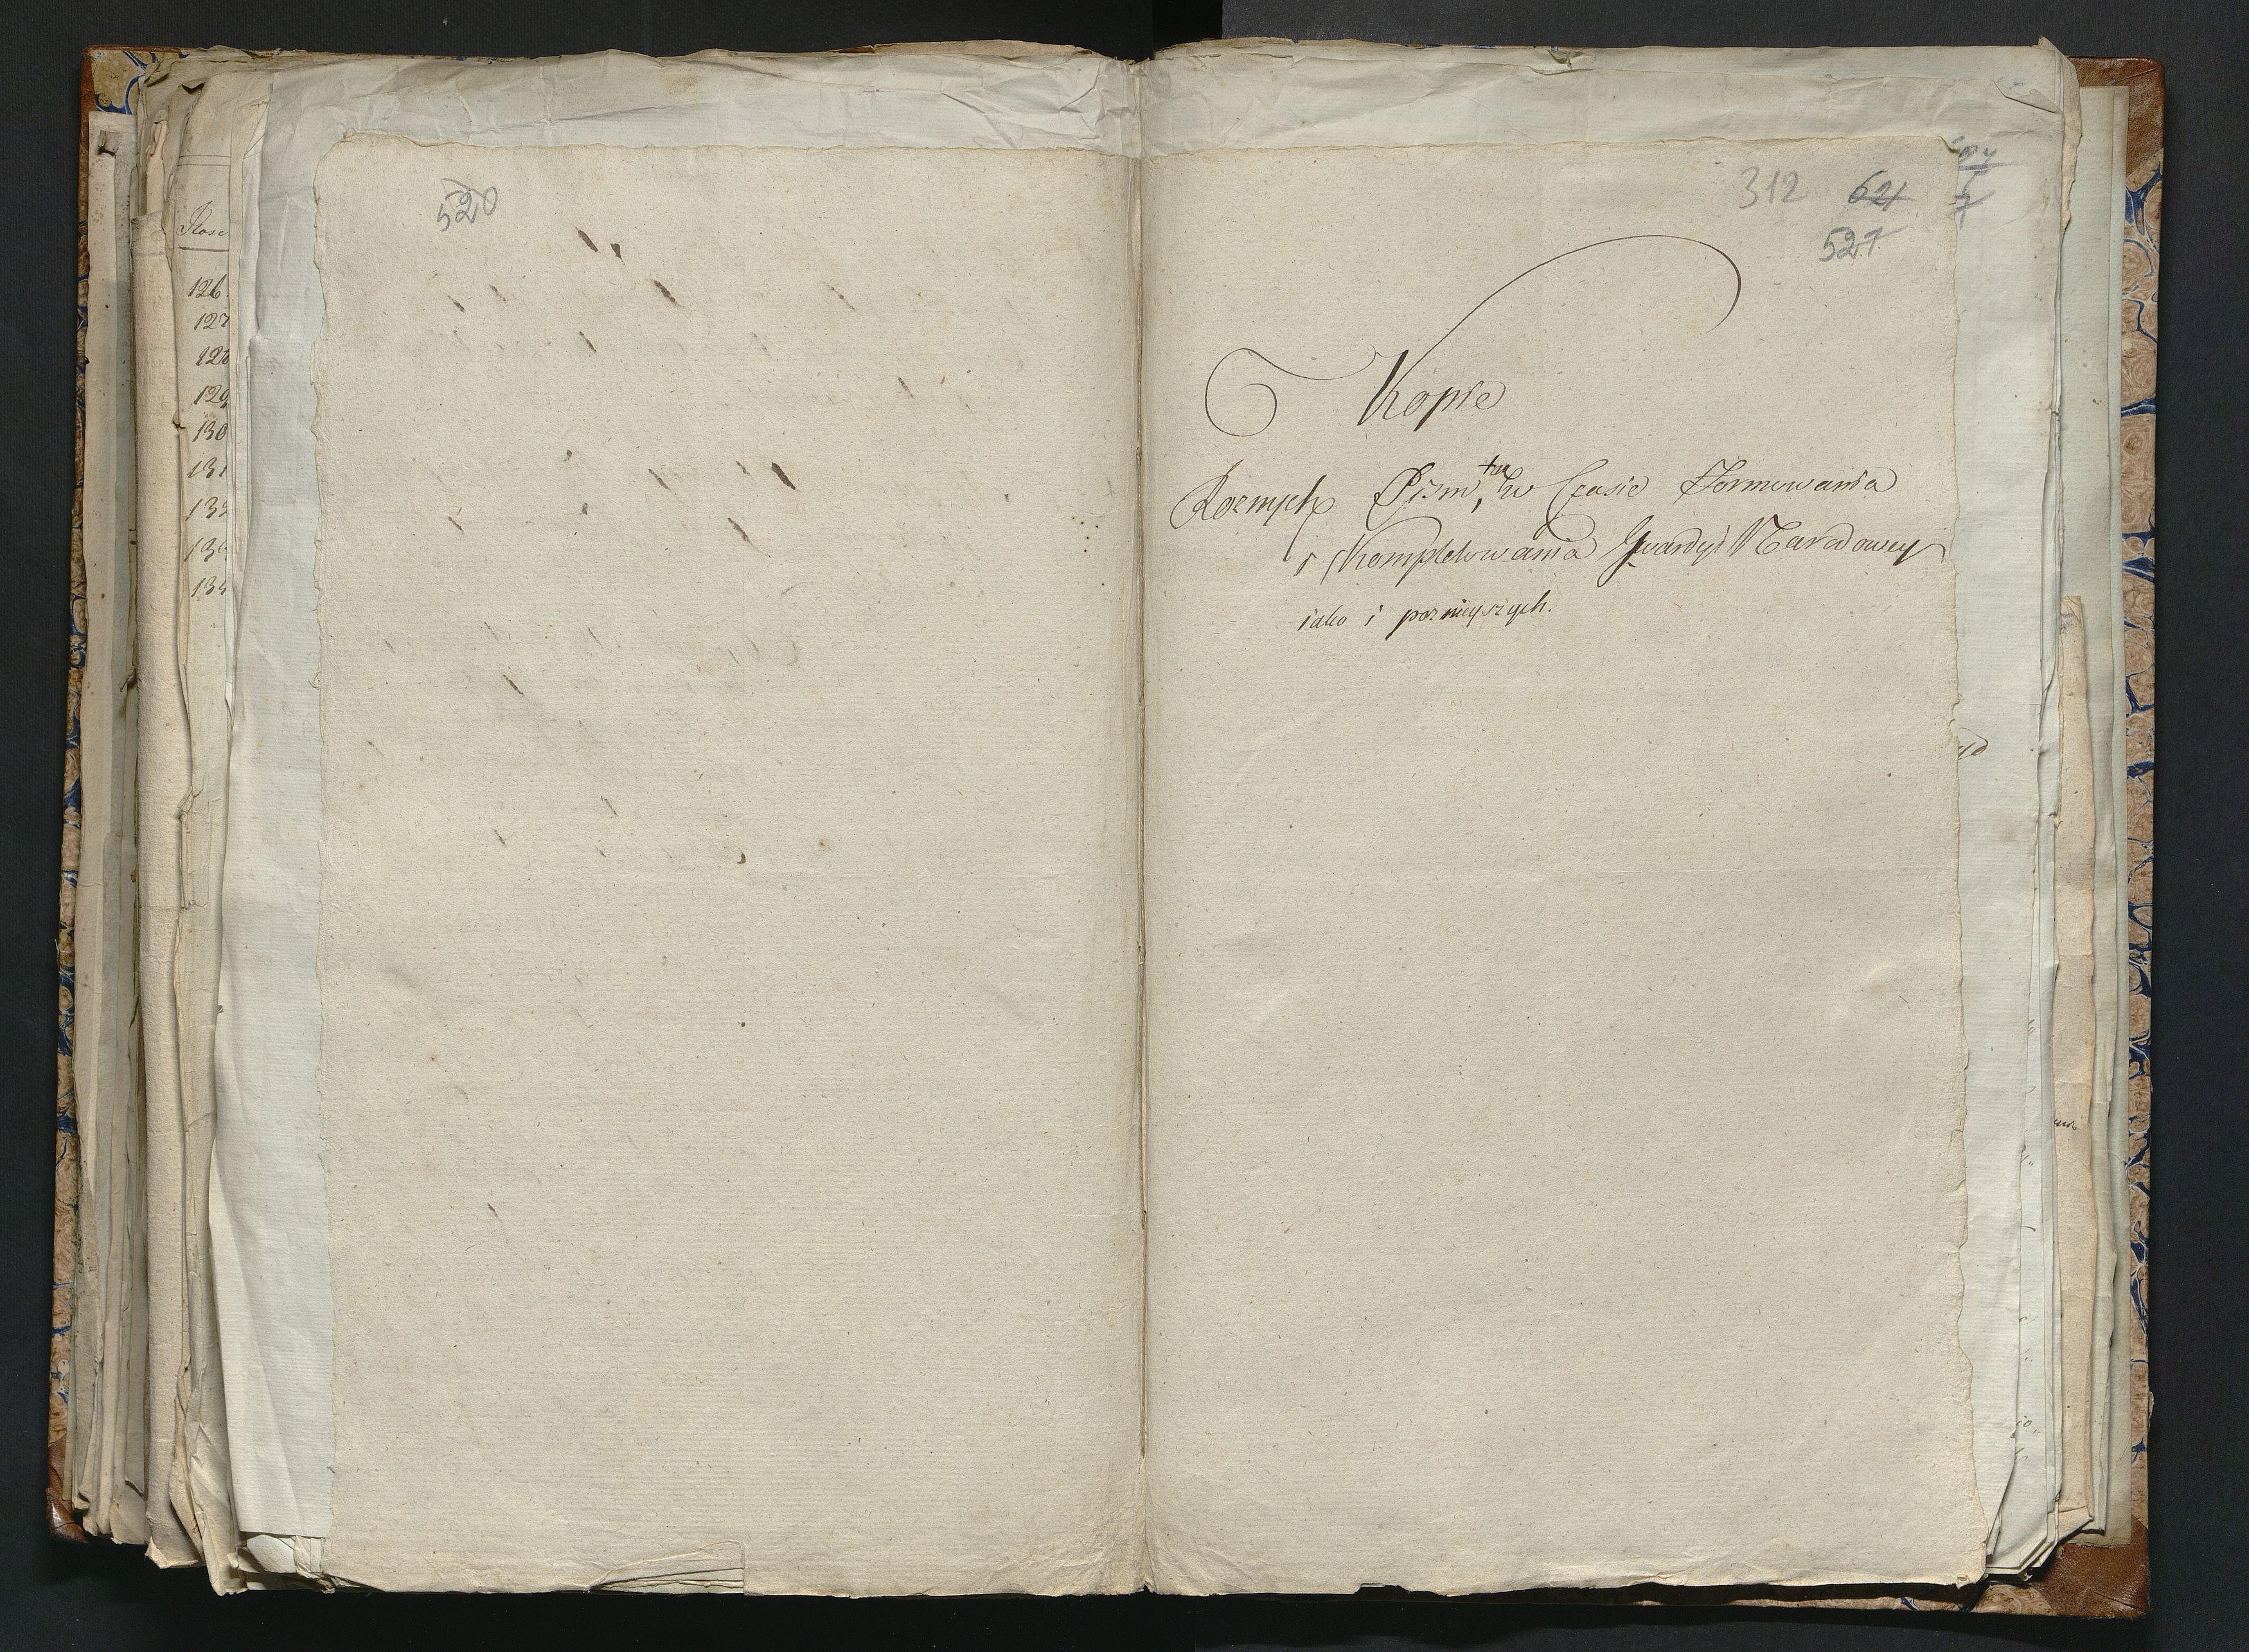 Rose
126.
127
128
129
130
131
520
312 621
527
Kopie
Roznych Pism, tu w Czasie Formowania
i Kompletowania Gwardyi Narodowey
iako i poznieyszych.